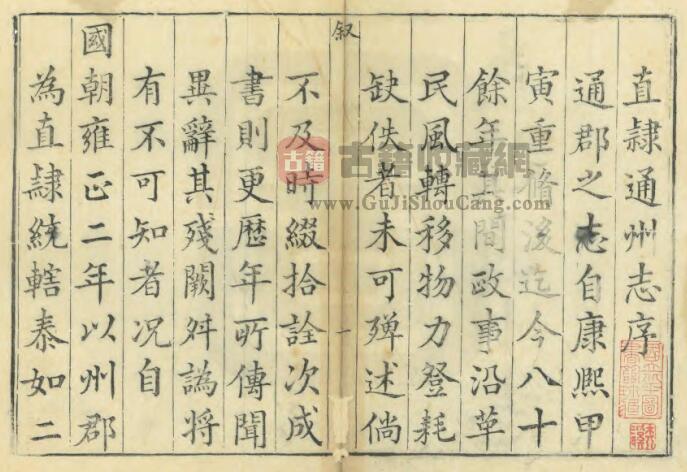 直隸通州志序
通郡之志自康熙甲
寅重脩後迄今八十
餘年其間政事沿革
民風轉移物力登耗
缺佚者未可殫述倘
叙
一
不及時綴拾詮次成
書則更歷年所傳聞
異辭其殘闕舛譌將
有不可知者况自
國朝雍正二年以州郡
為直隸統轄泰如二
古籍
古籍收藏網
www.GuJiShouCang.com